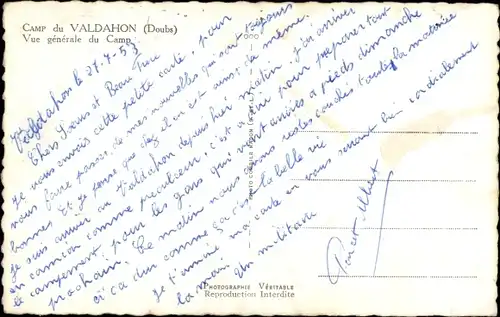 CAMP du VALDAHON (Doubs)
Vue générale du Camp
Valdahon le 27.4.53
Chers Sœurs et Beau Frère
Je vous envois cette petite carte, pour
vous faire passer de mes nouvelles qui sont toujours
bonnes. Et je pense que chez il en est aussi de même.
Je suis arrivé au Valdahon depuis hier matin. J'en arriver
en camion comme précurseur, c'est à dire pour préparer tout
le campement, pour les gars qui vont arrivés à pieds dimanche
prochain. Ce matin nous sommes restés couchés toute la matinée
ici ça dur comme ça c'est la belle vie
Je termine ma carte en vous serrant bien cordialement
la main. Un militaire
Pierrot Albert
PHOTOGRAPHIE VÉRITABLE
Reproduction Interdite